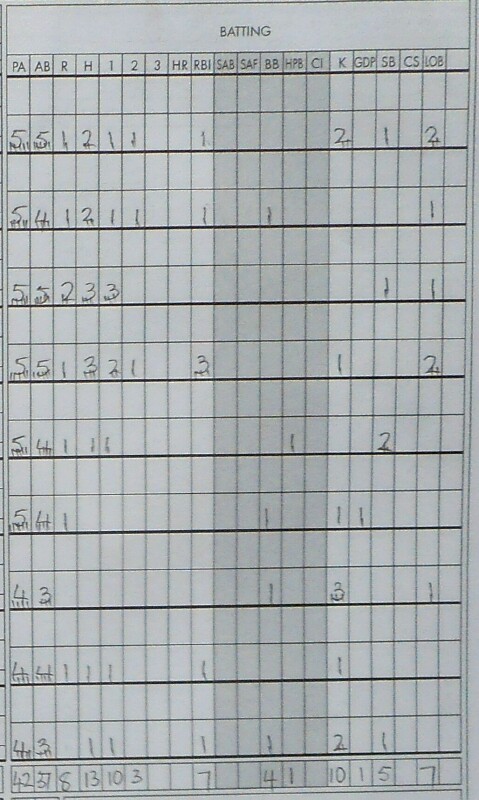 BATTING
PA AB R H 1 2 3 HR RBI SAB SAF BB HPB CI K GDP SB CS LOB
5 5 1 2 1 1 1 2 1 2
5 4 1 2 1 1 1 1 1
5 5 2 3 3 1 1
5 5 1 3 2 1 3 1 2
5 4 1 1 1 1 2
5 4 1 1 1 1
4 3 1 3 1
4 4 1 1 1 1 1
4 3 1 1 1 1 2 1
42 37 8 13 10 3 7 4 1 10 1 5 7